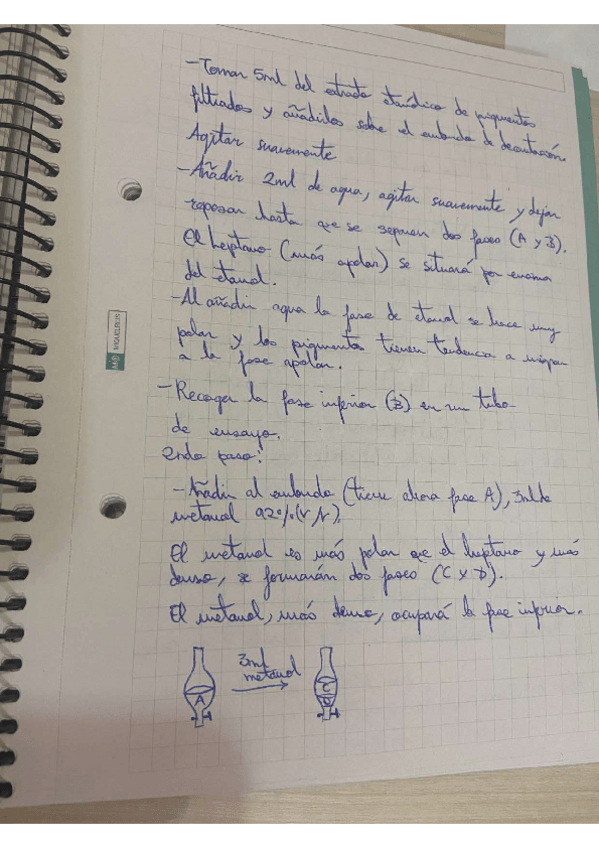 - Tomar 5ml del extracto etanólico de pigmentos
filtrados y añadirlos sobre el embudo de decantación
Agitar suavemente
- Añadir 2ml de agua, agitar suavemente y dejar
reposar hasta que se separen dos fases (A y B).
El heptano (más apolar) se situará por encima
del etanol.
- Al añadir agua la fase de etanol se hace muy
polar y los pigmentos tienen tendencia a migrar
a la fase apolar.
- Recoger la fase inferior (B) en un tubo
de ensayo.
2ndo paso:
- Añadir al embudo (tiene ahora fase A), 3ml de
metanol 92% (V/V).
El metanol es más polar que el heptano y más
denso, se formarán dos fases (C y D).
El metanol, más denso, ocupará la fase inferior.
3ml
metanol
A
C
D
MIQUELRIUS